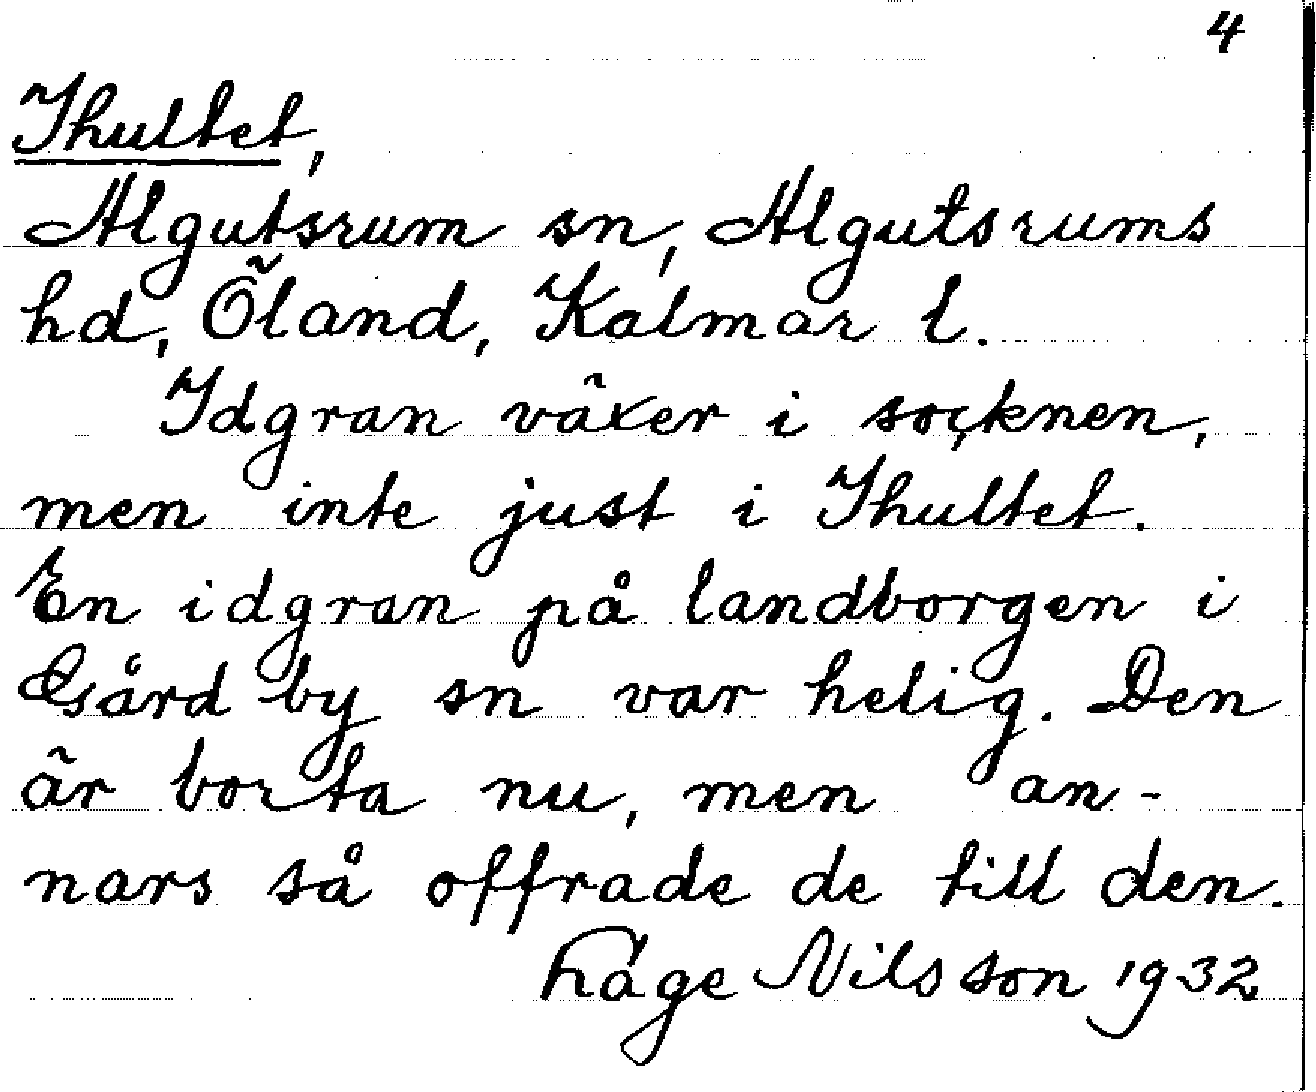 4
Ihultet,
Algutsrum sn, Algutsrums
hd, Öland, Kalmar l.
Idgran växer i socknen,
men inte just i Ihultet.
En idgran på landborgen i
Gårdby sn var helig. Den
är borta nu, men an-
nars så offrade de till den.
Håge Nilsson 1932